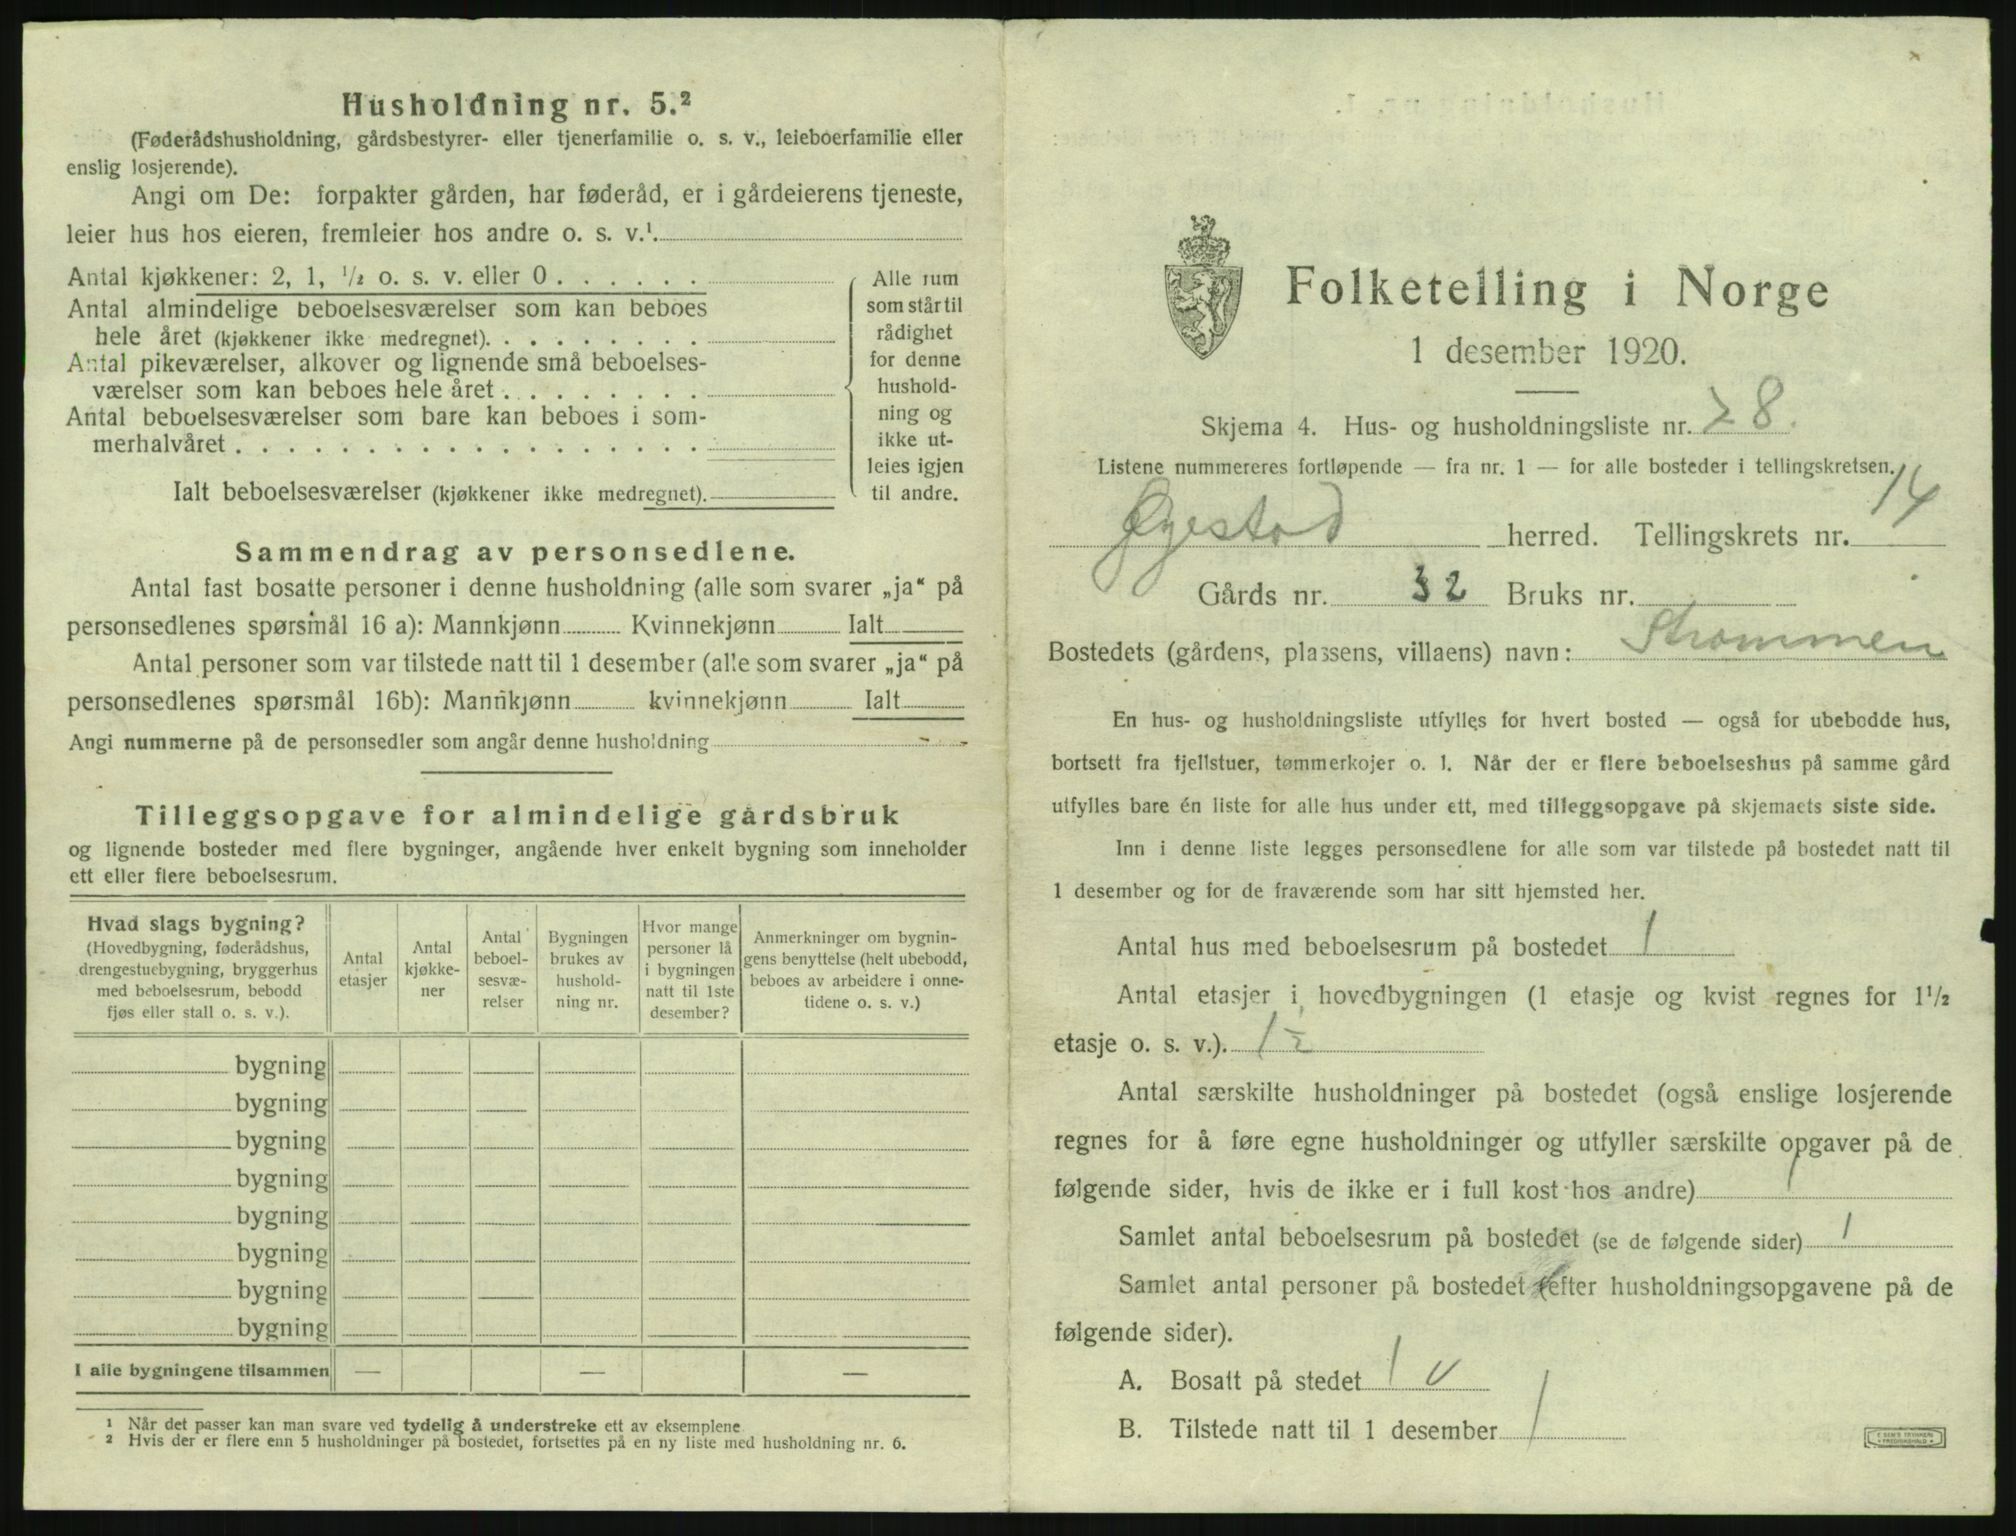 Husholdning nr. 5.²
(Føderådshusholdning, gårdsbestyrer- eller tjenerfamilie o. s. v., leieboerfamilie eller
enslig losjerende).
Angi om De: forpakter gården, har føderåd, er i gårdeierens tjeneste,
leier hus hos eieren, fremleier hos andre o. s. v.¹.
Antal kjøkkener: 2, 1, ½ o. s. v. eller 0 . . . . . .
Antal almindelige beboelsesværelser som kan beboes
hele året (kjøkkener ikke medregnet). . . . . . . . .
Antal pikeværelser, alkover og lignende små beboelses-
værelser som kan beboes hele året . . . . . . . .
Antal beboelsesværelser som bare kan beboes i som-
merhalvåret . . . . . . . . . . . . . . . . . .
Ialt beboelsesværelser (kjøkkener ikke medregnet).
Alle rum
som står til
rådighet
for denne
hushold-
ning og
ikke ut-
leies igjen
til andre.
Sammendrag av personsedlene.
Antal fast bosatte personer i denne husholdning (alle som svarer „ja“ på
personsedlenes spørsmål 16 a): Mannkjønn Kvinnekjønn Ialt
Antal personer som var tilstede natt til 1 desember (alle som svarer „ja“ på
personsedlenes spørsmål 16b): Mannkjønn kvinnekjønn Ialt
Angi nummerne på de personsedler som angår denne husholdning
Tilleggsopgave for almindelige gårdsbruk
og lignende bosteder med flere bygninger, angående hver enkelt bygning som inneholder
ett eller flere beboelsesrum.
Hvad slags bygning?
(Hovedbygning, føderådshus,
drengestuebygning, bryggerhus
med beboelsesrum, bebodd
fjøs eller stall o. s. v.).
Antal
etasjer
Antal
kjøkke-
ner
Antal
beboel-
sesvæ-
relser
Bygningen
brukes av
hushold-
ning nr.
Hvor mange
personer lå
i bygningen
natt til 1ste
desember?
Anmerkninger om bygnin-
gens benyttelse (helt ubebodd,
beboes av arbeidere i onne-
tidene o. s. v.)
bygning
bygning
bygning
bygning
bygning
bygning
bygning
bygning
I alle bygningene tilsammen — — —
¹ Når det passer kan man svare ved tydelig å understreke ett av eksemplene.
² Hvis der er flere enn 5 husholdninger på bostedet, fortsettes på en ny liste med husholdning nr. 6.
Folketelling i Norge
1 desember 1920.
Skjema 4. Hus- og husholdningsliste nr. 28.
Listene nummereres fortløpende — fra nr. 1 — for alle bosteder i tellingskretsen.
Øyestad herred. Tellingskrets nr. 14
Gårds nr. 32 Bruks nr.
Bostedets (gårdens, plassens, villaens) navn: Strømmen
En hus- og husholdningsliste utfylles for hvert bosted — også for ubebodde hus,
bortsett fra fjellstuer, tømmerkojer o. l. Når der er flere beboelseshus på samme gård
utfylles bare én liste for alle hus under ett, med tilleggsopgave på skjemaets siste side.
Inn i denne liste legges personsedlene for alle som var tilstede på bostedet natt til
1 desember og for de fraværende som har sitt hjemsted her.
Antal hus med beboelsesrum på bostedet 1
Antal etasjer i hovedbygningen (1 etasje og kvist regnes for 1½
etasje o. s. v.). 1½
Antal særskilte husholdninger på bostedet (også enslige losjerende
regnes for å føre egne husholdninger og utfyller særskilte opgaver på de
følgende sider, hvis de ikke er i full kost hos andre) 1
Samlet antal beboelsesrum på bostedet (se de følgende sider) 1
Samlet antal personer på bostedet (efter husholdningsopgavene på de
følgende sider).
A. Bosatt på stedet 1
B. Tilstede natt til 1 desember 1